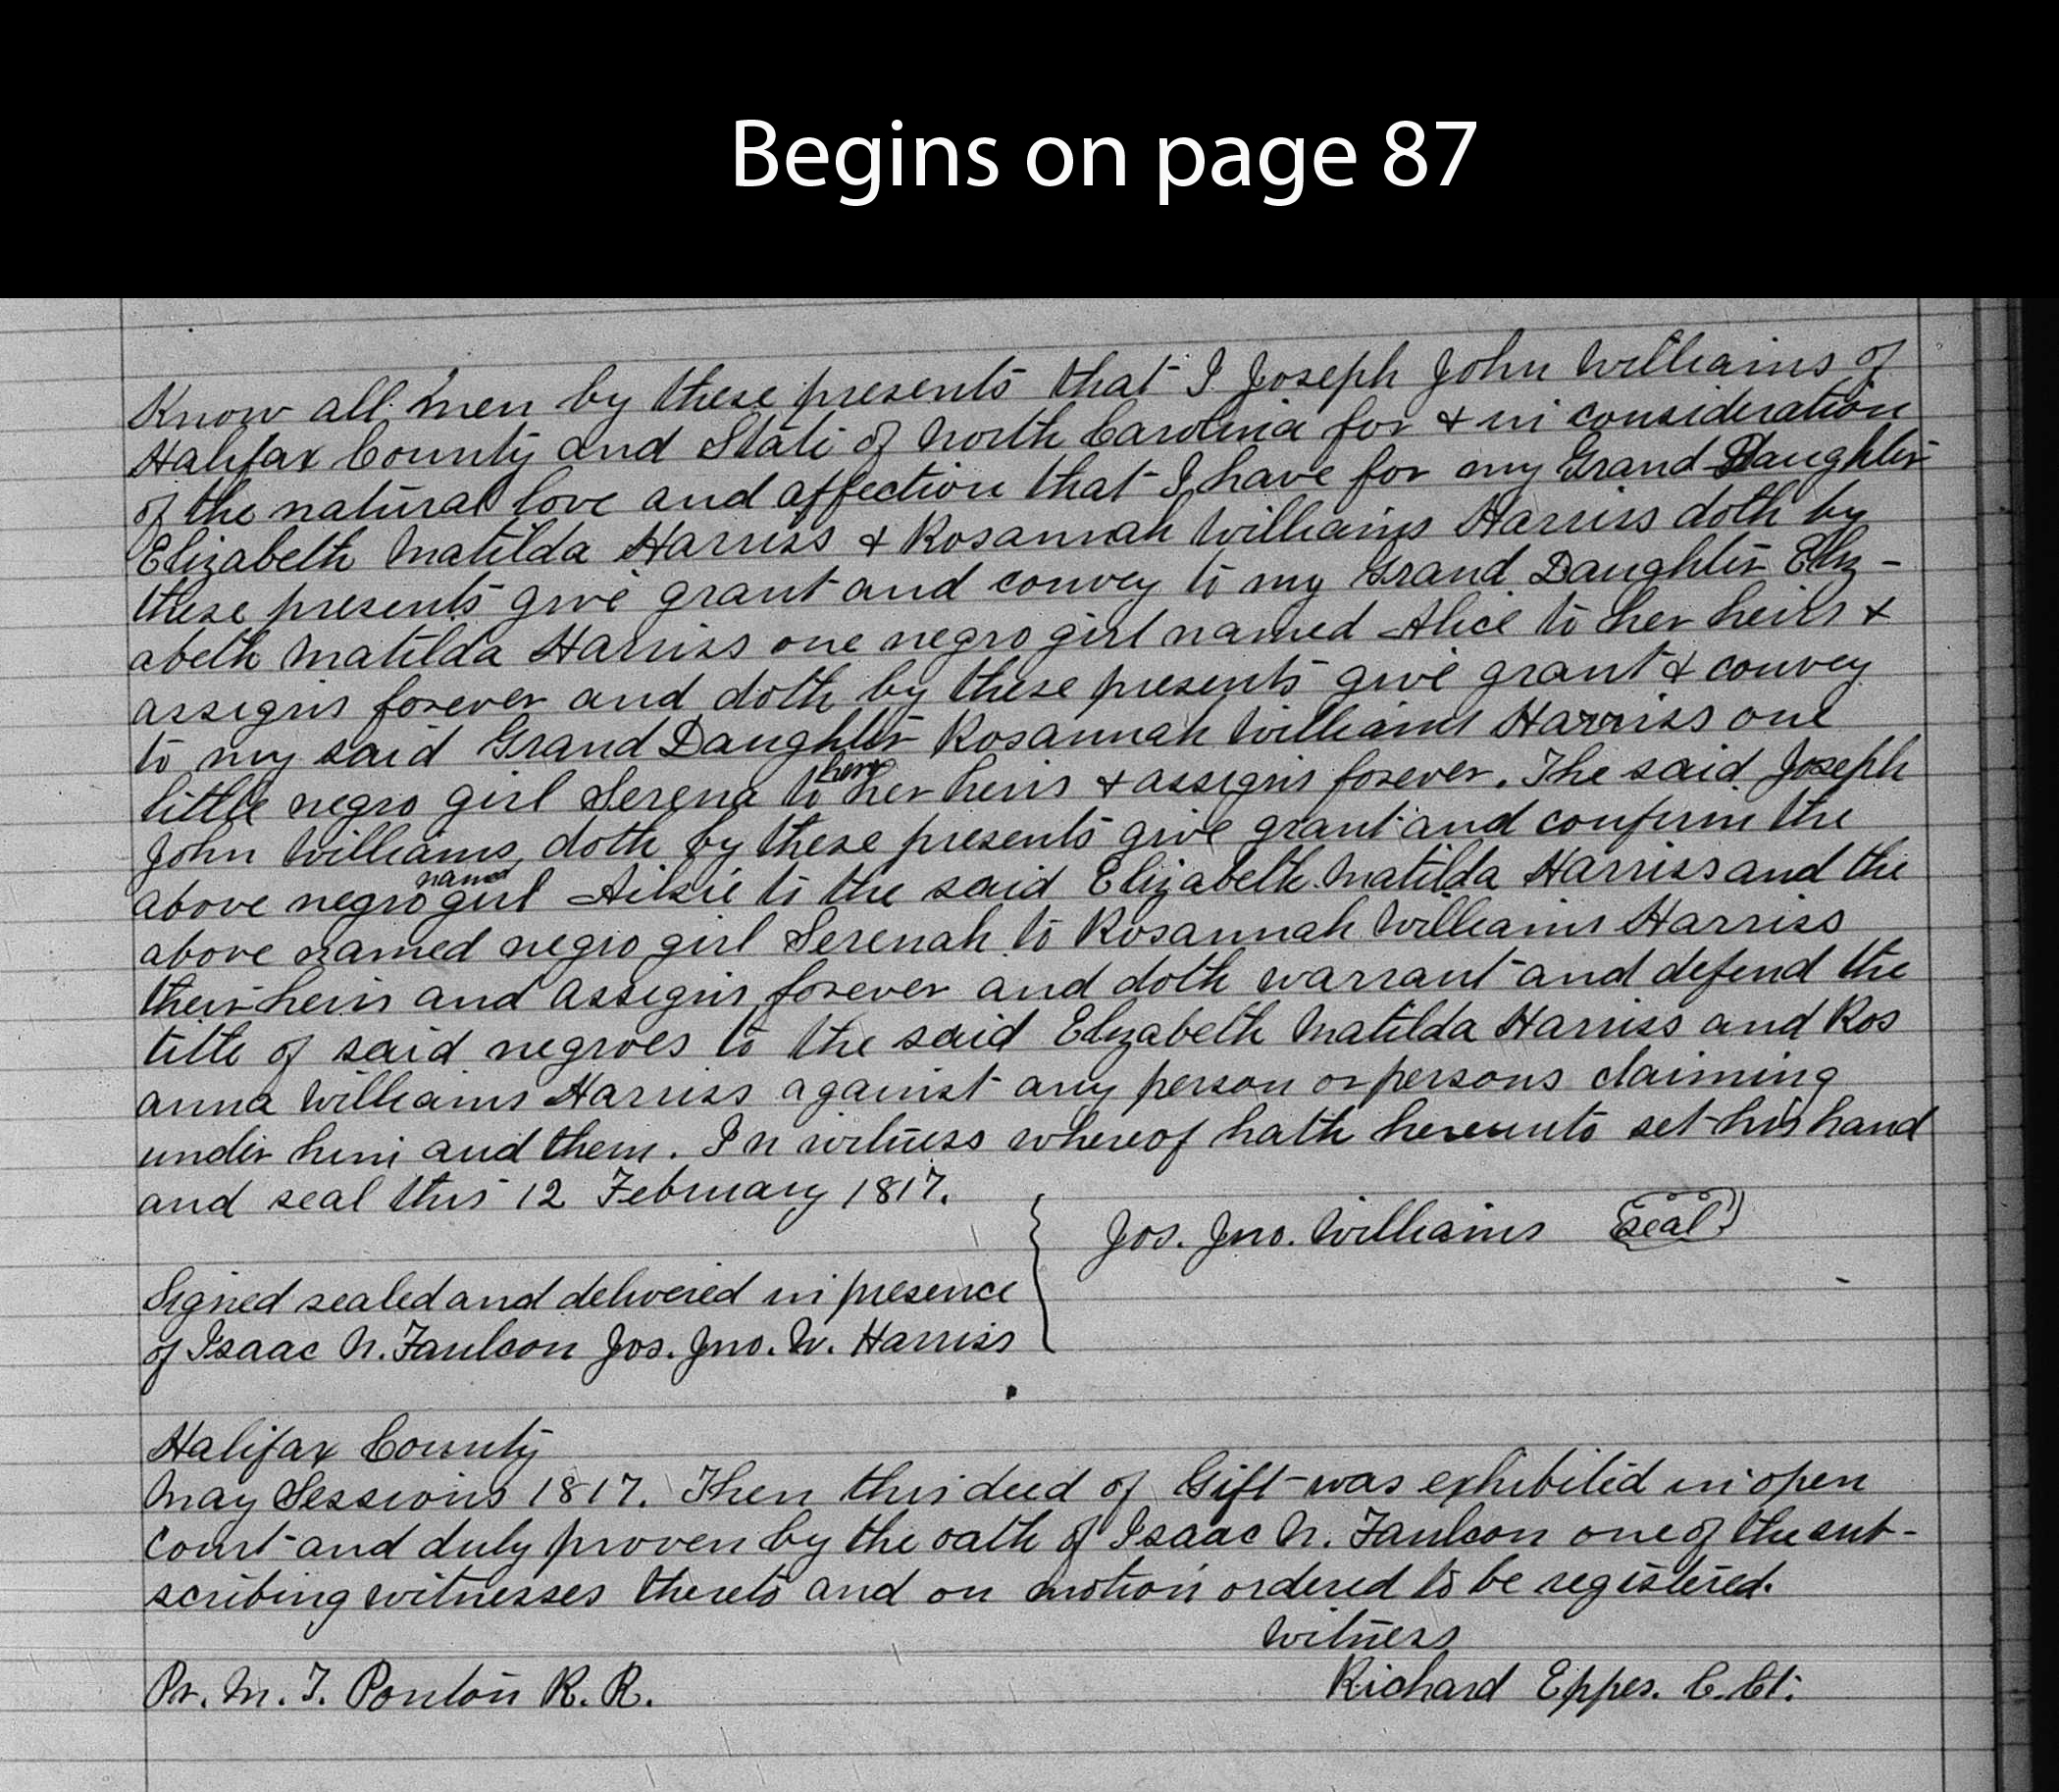 Begins on page 87
Know all men by these presents that I Joseph John Williams of
Halifax County and State of North Carolina for & in consideration
of the natural love and affection that I have for my Grand Daughter
Elizabeth Matilda Harriss & Rosannah Williams Harriss doth by
these presents give grant and convey to my Grand Daughter Eliz-
abeth Matilda Harriss one negro girl named Alice to her heirs &
assigns forever and doth by these presents give grant & convey
to my said Grand Daughter Rosannah Williams Harriss one
little negro girl Serena to her heirs & assigns forever. The said Joseph
John Williams doth by these presents give grant and confirm the
above negro named girl Ailsie to the said Elizabeth Matilda Harriss and the
above named negro girl Serenah to Rosannah Williams Harriss
their heirs and assigns forever and doth warrant and defend the
title of said negroes to the said Elizabeth Matilda Harriss and Ros
anna Williams Harriss against any person or persons claiming
under him and them. In witness whereof hath hereunto set his hand
and seal this 12 February 1817.
Jos. Jno. Williams seal
Signed sealed and delivered in presence
of Isaac N. Faulcon Jos. Jno. W. Harriss
Halifax County
May Sessions 1817. Then this deed of Gift was exhibited in open
Court and duly proven by the oath of Isaac N. Faulcon one of the sub-
scribing witnesses thereto and on motion ordered to be registered.
Witness
Pr. M. T. Ponton R. R.
Richard Eppes. C. Ct.